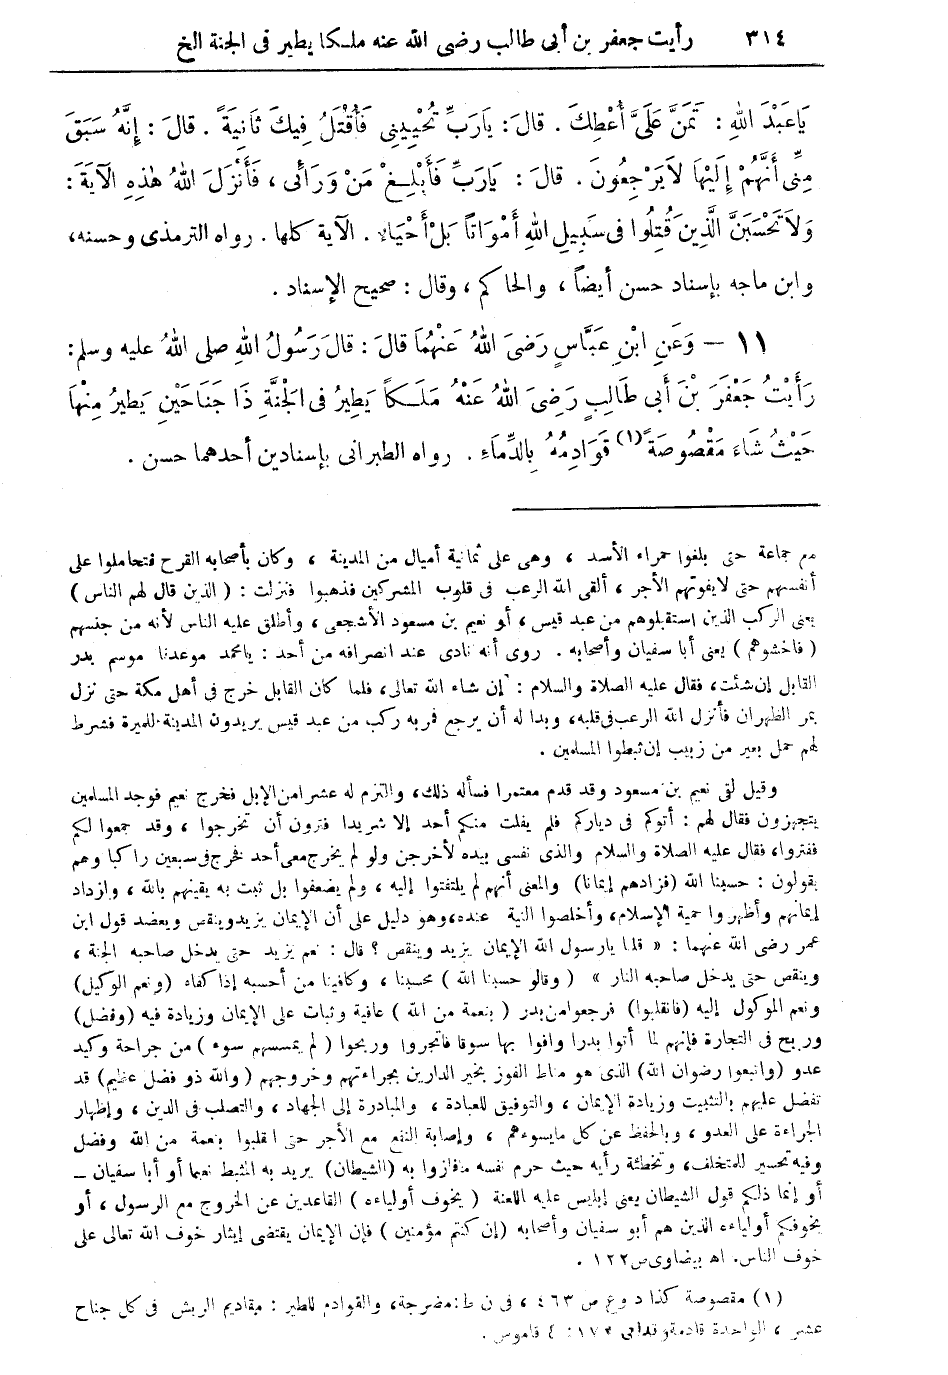 ٣١٤ رأيت جعفر بن أبى طالب رضى الله عنه ملكا يطير فى الجنة الخ
يَاعَبْدَ اللهِ : تَمَنَّ عَلَىَّ أُعْطِكَ . قَالَ : يَارَبِّ تُحْيِينِى فَأُقْتَلُ فِيكَ ثَانِيَةً . قَالَ : إِنَّهُ سَبَقَ
مِنِّى أَنَّهُمْ إِلَيْهَا لاَيَرْجِعُونَ . قَالَ : يَارَبِّ فَأَبْلِغْ مَنْ وَرَائِى ، فَأَنْزَلَ اللهُ هٰذِهِ الآيَةَ :
وَلاَ تَحْسَبَنَّ الَّذِينَ قُتِلُوا فِى سَبِيلِ اللهِ أَمْوَاتاً بَلْ أَحْيَاءٌ . الآية كلها . رواه الترمذى وحسنه ،
وابن ماجه بإسناد حسن أيضاً ، والحاكم ، وقال : صحيح الإسناد .
١١ — وَعَنِ ابْنِ عَبَّاسٍ رَضِىَ اللهُ عَنْهُمَا قَالَ : قَالَ رَسُولُ اللهِ صلى اللهُ عليه وسلم :
رَأَيْتُ جَعْفَرَ بْنَ أَبِى طَالِبٍ رَضِىَ اللهُ عَنْهُ مَلَكاً يَطِيرُ فِى الْجَنَّةِ ذَا جَنَاحَيْنِ يَطِيرُ مِنْهَا
حَيْثُ شَاءَ مَقْصُوصَةً (١) قَوَادِمُهُ بِالدِّمَاءِ . رواه الطبرانى بإسنادين أحدهما حسن .
مع جماعة حتى بلغوا حمراء الأسد ، وهى على ثمانية أميال من المدينة ، وكان بأصحابه القرح فتحاملوا على
أنفسهم حتى لايفوتهم الأجر ، ألقى الله الرعب فى قلوب المشركين فذهبوا فنزلت : ( الذين قال لهم الناس )
يعنى الركب الذين استقبلوهم من عبد قيس ، أو نعيم بن مسعود الأشجعى ، وأطلق عليه الناس لأنه من جنسهم
( فاخشوهم ) يعنى أبا سفيان وأصحابه . روى أنه نادى عند انصرافه من أحد : يامحمد موعدنا موسم بدر
القابل إن شئت ، فقال عليه الصلاة والسلام : إن شاء الله تعالى ، فلما كان القابل خرج فى أهل مكة حتى نزل
بمر الظهران فأنزل الله الرعب فى قلبه ، وبدا له أن يرجع فمر به ركب من عبد قيس يريدون المدينة للميرة فشرط
لهم حمل بعير من زبيب إن ثبطوا المسلمين .
وقيل لقى نعيم بن مسعود وقد قدم معتمرا فسأله ذلك ، والتزم له عشرا من الإبل فخرج نعيم فوجد المسلمين
يتجهزون فقال لهم : أتوكم فى دياركم فلم يفلت منكم أحد إلا شريدا فترون أن تخرجوا ، وقد جمعوا لكم
ففتروا ، فقال عليه الصلاة والسلام والذى نفسى بيده لأخرجن ولو لم يخرج معى أحد فخرج فى سبعين راكبا وهم
يقولون : حسبنا الله (فزادهم إيمانا) والمعنى أنهم لم يلتفتوا إليه ، ولم يضعفوا بل ثبت به يقينهم بالله ، وازداد
إيمانهم وأظهروا حمية الإسلام ، وأخلصوا النية عنده ، وهو دليل على أن الإيمان يزيد وينقص ويعضد قول ابن
عمر رضى الله عنهما : « قلنا يارسول الله الإيمان يزيد وينقص ؟ قال : نعم يزيد حتى يدخل صاحبه الجنة ،
وينقص حتى يدخل صاحبه النار » ( وقالو حسبنا الله ) محسبنا ، وكافينا من أحسبه إذا كفاه (ونعم الوكيل)
ونعم الموكول إليه (فانقلبوا) فرجعوا من بدر ( بنعمة من الله ) عافية وثبات على الإيمان وزيادة فيه (وفضل)
وربح فى التجارة فإنهم لما أتوا بدرا وافوا بها سوقا فاتجروا وربحوا ( لم يمسسهم سوء ) من جراحة وكيد
عدو (واتبعوا رضوان الله) الذى هو مناط الفوز بخير الدارين بجراءتهم وخروجهم (والله ذو فضل عظيم) قد
تفضل عليهم بالتثبيت وزيادة الإيمان ، والتوفيق للعبادة ، والمبادرة إلى الجهاد ، والتصلب فى الدين ، وإظهار
الجراءة على العدو ، وبالحفظ عن كل مايسوءهم ، وإصابة النفع مع الأجر حتى انقلبوا بنعمة من الله وفضل
وفيه تحسير للمتخلف ، وتخطئة رأيه حيث حرم نفسه مافازوا به (الشيطان) يريد به المثبط نعيما أو أبا سفيان —
أو إنما ذلكم قول الشيطان يعنى إبليس عليه اللعنة ( يخوف أولياءه ) القاعدين عن الخروج مع الرسول ، أو
يخوفكم أولياءه الذين هم أبو سفيان وأصحابه (إن كنتم مؤمنين ) فإن الإيمان يقتضى إيثار خوف الله تعالى على
خوف الناس . اه بيضاوى ص ١٢٢ .
(١) مقصوصة كذا د وع ص ٤٦٣ ، فى ن ط : مضرجة ، والقوادم للطير : مقاديم الريش فى كل جناح
عشر ، الواحدة قادمة وقدامى ١٧٣ : ٤ قاموس .